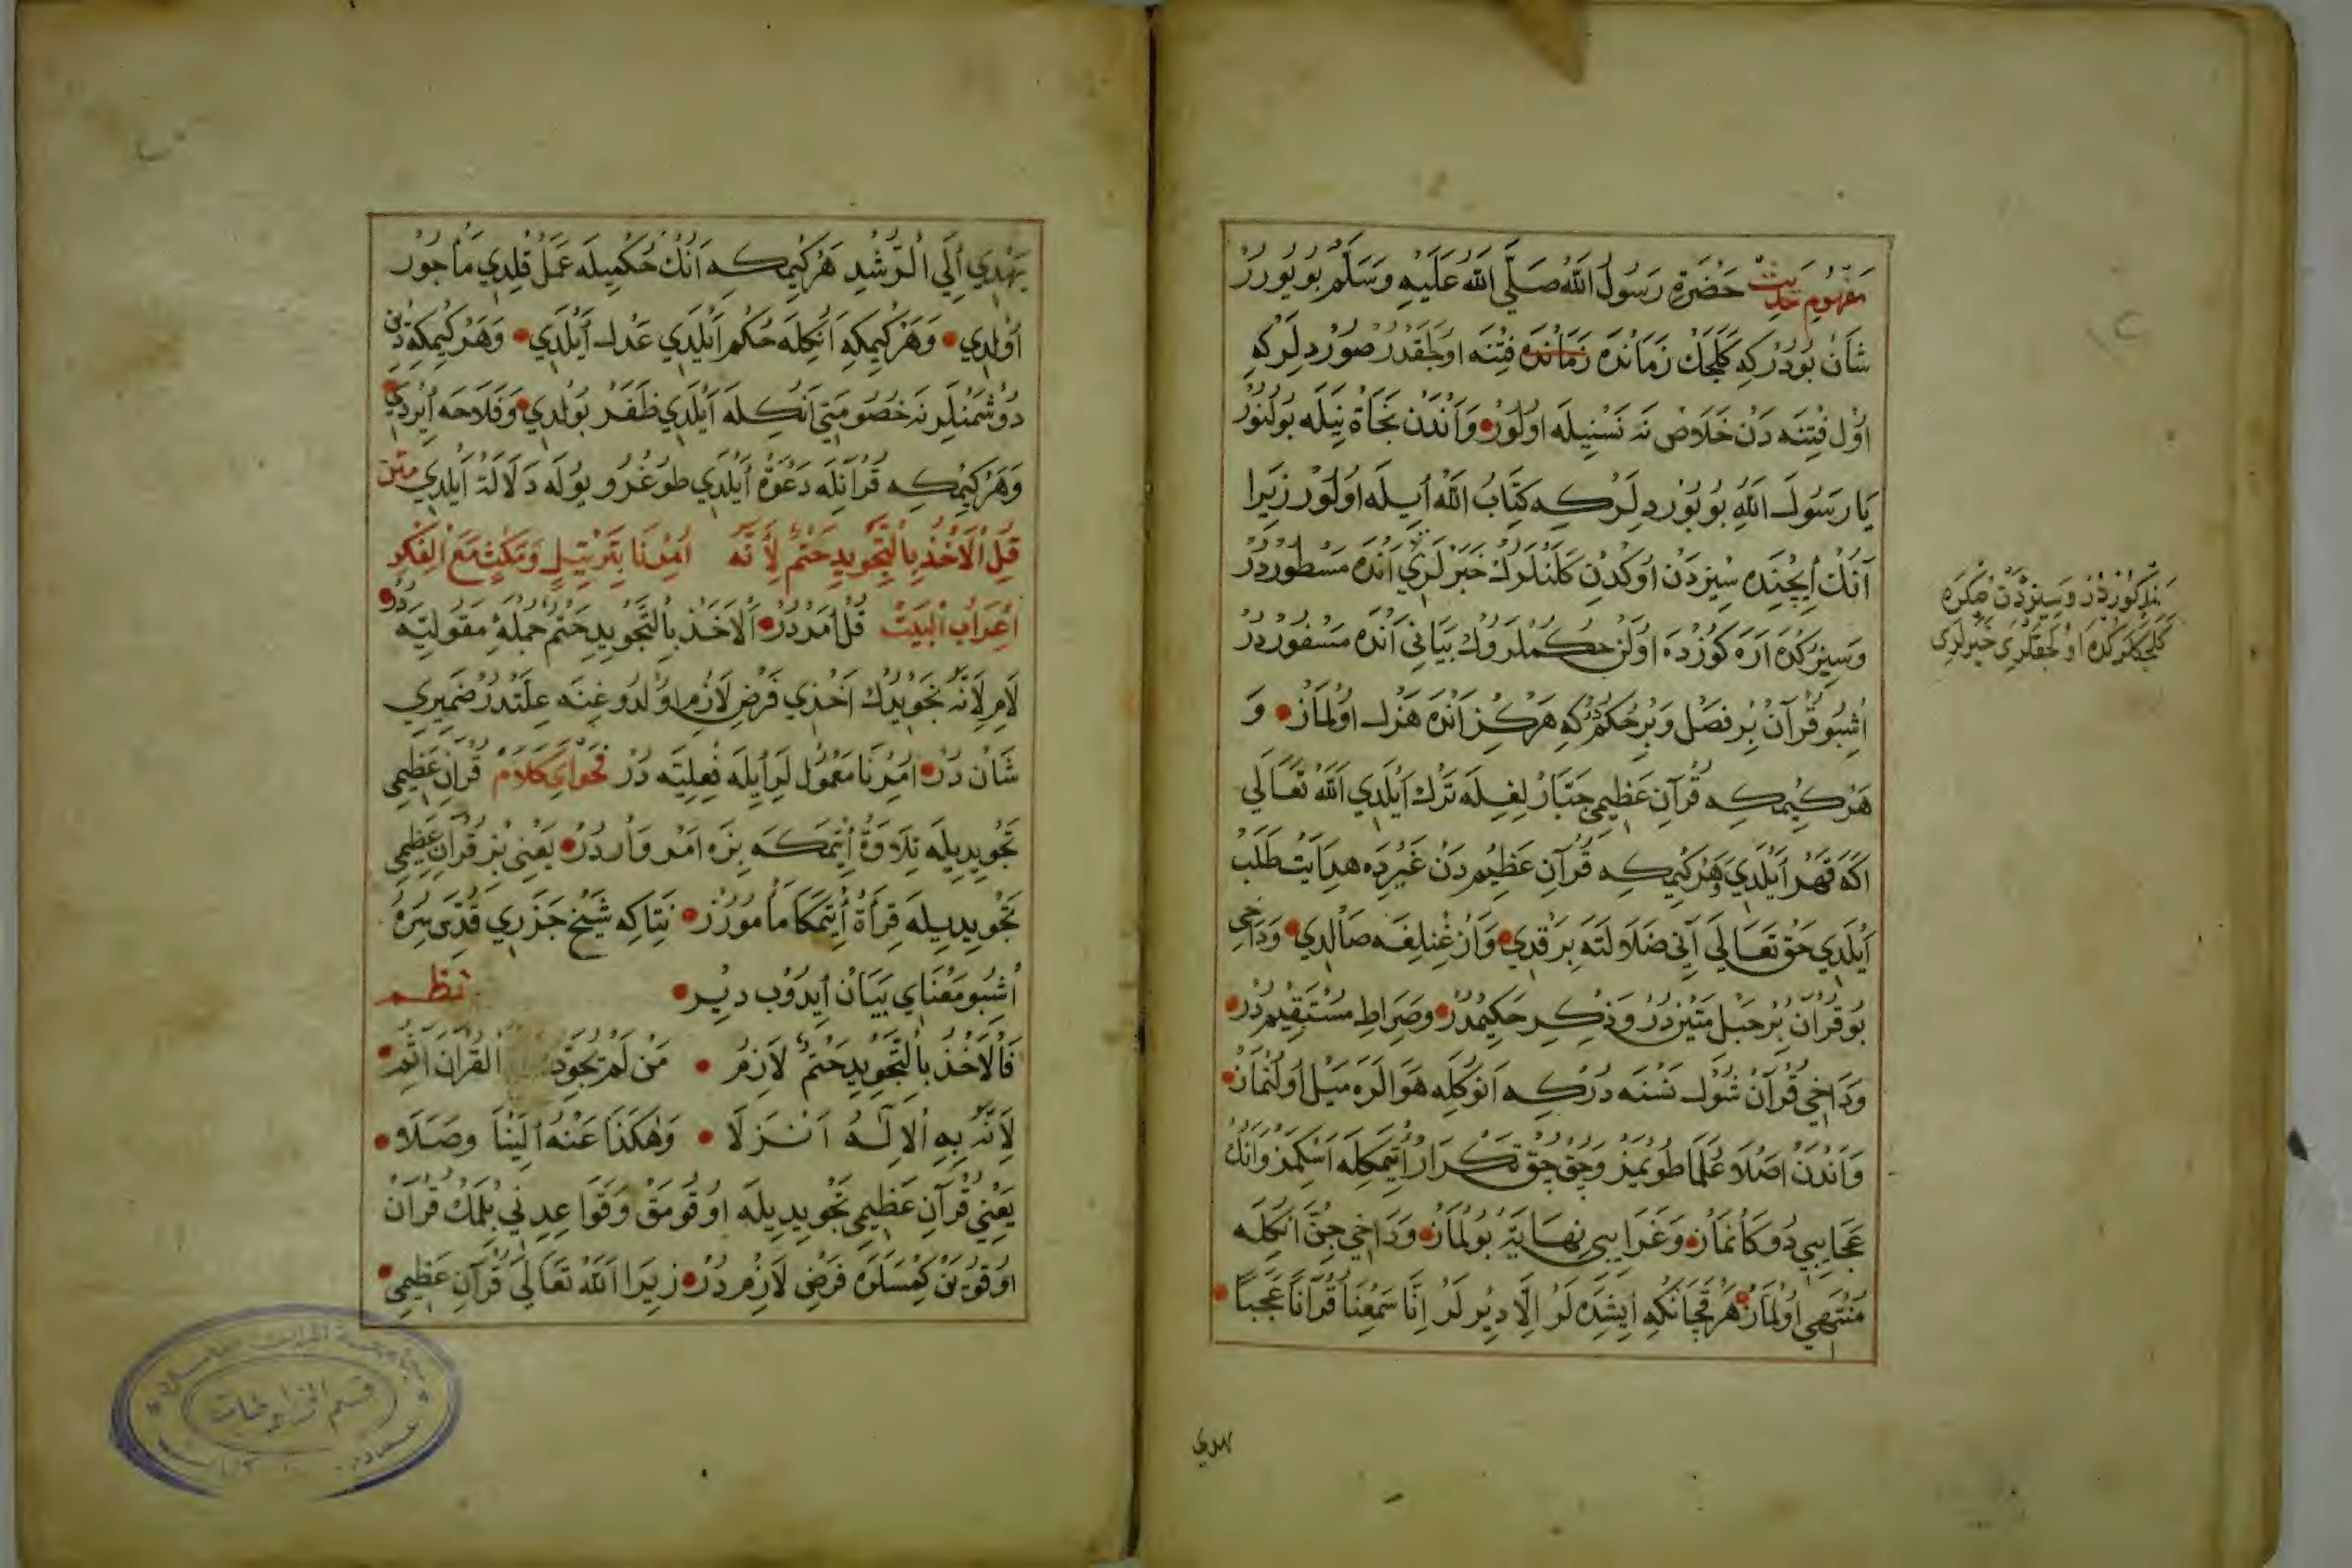 مَفْهُومِ حَدِيثْ حَضْرَةِ رَسُولُ اللّٰه صَلَّي اللّٰه عَلَيْهِ وَسَلَّمْ بُويُورُرْ
شَانْ بُودُرْكِه كَلَجَكْ زَمَانْدَه زَمَانْدَه فِتْنَه اولَجَقْدُرْ صُورْدِلَرْكِه
اوُلْ فِتْنَه دَنْ خَلَاصْ نَه نَسْنِيلَه اوُلُورْ وَاَنْدَنْ نَجَاةْ نِيلَه بُولُنُورْ
يَا رَسُولَ اللّٰهِ بُويُورْدِلَرْكِه كِتَابُ اللّٰه اِيلَه اوُلُورْ زِيرَا
اَنُكْ اِيچِنْدَه سِيزْدَنْ اوُكْدِنْ كَلَنْلَرُكْ خَبَرْلَرِي اَنْدَه مَسْطُورْدُرْ
وَسِيزُكْ اَرَه كُوزْدَه اوُلَنْ حُكْملَرُوكْ بَيَانِي اَنْدَه مَسْفُورْدُرْ
اُشْبُو قُرْآنْ بُرْ فَصْلْ وَبِرْ حُكْمْدُرْكِه هَرْكِزْ اَنْدَه هَزْلْ اوُلْمَازْ وَ
هَرْكِيمْكِه قُرْآنِ عَظِيمِي جَبَّارْلِغِلَه تَرْكْ اَيْلَدِي اَللّٰهْ تَعَالَي
اَكَه قَهْرْ اَيْلَدِي وَهَرْكِيمْكِه قُرْآنِ عَظِيمْدَنْ غَيْرِدَه هِدَايَتْ طَلَبْ
اَيْلَدِي حَقْ تَعَالَي اَنِي ضَلَالَتَه بِرَقْدِي وَاَزْغِنْلِغَه صَالْدِي وَدَاخِي
بُو قُرْآنْ بُرْ حَبْلِ مَتِينْدُرْ وَذِكْرِ حَكِيمْدُرْ وَصِرَاطِ مُسْتَقِيمْدُرْ
وَدَاخِي قُرْآنْ شُولْ نَسْنَه دُرْكِه اَنُوكْلَه هَوَالَرَه مَيْلْ اوُلُنْمَازْ
وَاَنْدَنْ اَصْلَا عُلَمَا طُويْمَزْ وَچَقْ چَقْ تَكْرَارْ اِتْمَكْلَه اَسْكِمَزْ وَاَنُكْ
عَجَايِبِي دُوكَانْمَازْ وَغَرَايِبِي نِهَايَةْ بُولْمَازْ وَدَاخِي جِنْ اَنُكْلَه
مُنْتَهِي اوُلْمَازْ هَرْقَچَانْكِه اِيشِدَه لَرْ اِلَّا دِيْرلَرْ اِنَّا سَمِعْنَا قُرْآنًا عَجَبًا
مَذْكُورْدُرْ وَسِيزْدَنْ صُكْرَه
كَلَجَكْلَرْكْدَه اوُلَجَقْلَرِي خَبَرْلَرِي
يهدي
يَهْدِي اِلَي الرُّشْدِ هَرْكِيمْكِه اَنُكْ حُكْمِيلَه عَمَلْ قِلْدِي مَأْجُورْ
اوُلْدِي وَهَرْكِيمْكِه اَنُكْلَه حُكْمْ اَيْلَدِي عَدْلْ اَيْلَدِي وَهَرْكِيمْكِه دِينْ
دُوشْمَنْلَرِنَه خُصُومَتِي اَنُكْلَه اَيْلَدِي ظَفَرْ بُولْدِي وَفَلَاحَه اِيرْدِي
وَهَرْكِيمْكِه قُرْآنْلَه دَعْوَةْ اَيْلَدِي طُوغْرُو يُولَه دَلَالَةْ اَيْلَدِي مَتْن
قُلِ الْاَخْذُ بِالتَّجْوِيدِ حَتْمٌ لِأَنَّهُ اُمِرْنَا بِتَرْتِيلٍ وَمَكْثٍ مَعَ الْفِكْرِ
اِعْرَابِ الْبَيْتْ قُلْ اَمْردُرْ اَلْاَخْذُ بِالتَّجْوِيدِ حَتْمٌ جُمْلَهُ مَقُولِيَّه دُرْ
لَامِ لِاَنَّهُ تَجْوِيدُكْ اَخْذِي فَرْضِ لَازِمْ اوُلْدُوغِنَه عِلَّتْدُرْ ضَمِيرِي
شَانْ دُرْ اُمِرْنَا مَعْمُوللَرِ اِيلَه فِعْلِيَّه دُرْ فَحْوَاىِ كَلَامْ قُرْآنِ عَظِيمِي
تَجْوِيدِيلَه تِلَاوَةْ اِتْمَكَه بِزَه اَمْرْ وَارْدُرْ يَعْنِي بِزْ قُرْآنِ عَظِيمِي
تَجْوِيدِيلَه قِرَأَةْ اِتْمَكَا مَأْمُورُزْ نِتَاكِه شَيْخْ جَزَرِي قُدِّسَ سِرُّهُ
اُشْبُو مَعْنَايِ بَيَانْ اِيدُوبْ دِيْرْ نَظم
فَالْاَخْذُ بِالتَّجْوِيدِ حَتْمٌ لَازِمُ مَنْ لَمْ يُجَوِّدْ اَلْقُرْآنَ آثِمُ
لِاَنَّهُ بِهِ الْاِلٰهُ اَنْزَلَا وَهٰكَذَا عَنْهُ اِلَيْنَا وَصَلَا
يَعْنِي قُرْآنِ عَظِيمِي تَجْوِيدِيلَه اوُقُومَقْ وَقَوَاعِدِنِي بِلْمَكْ قُرْآنْ
اوُقُويَنْ كِمْسَلَرَه فَرْضِ لَازِمْ دُرْ زِيرَا اَللّٰه تَعَالَي قُرْآنِ عَظِيمِي
قسم المخطوطات